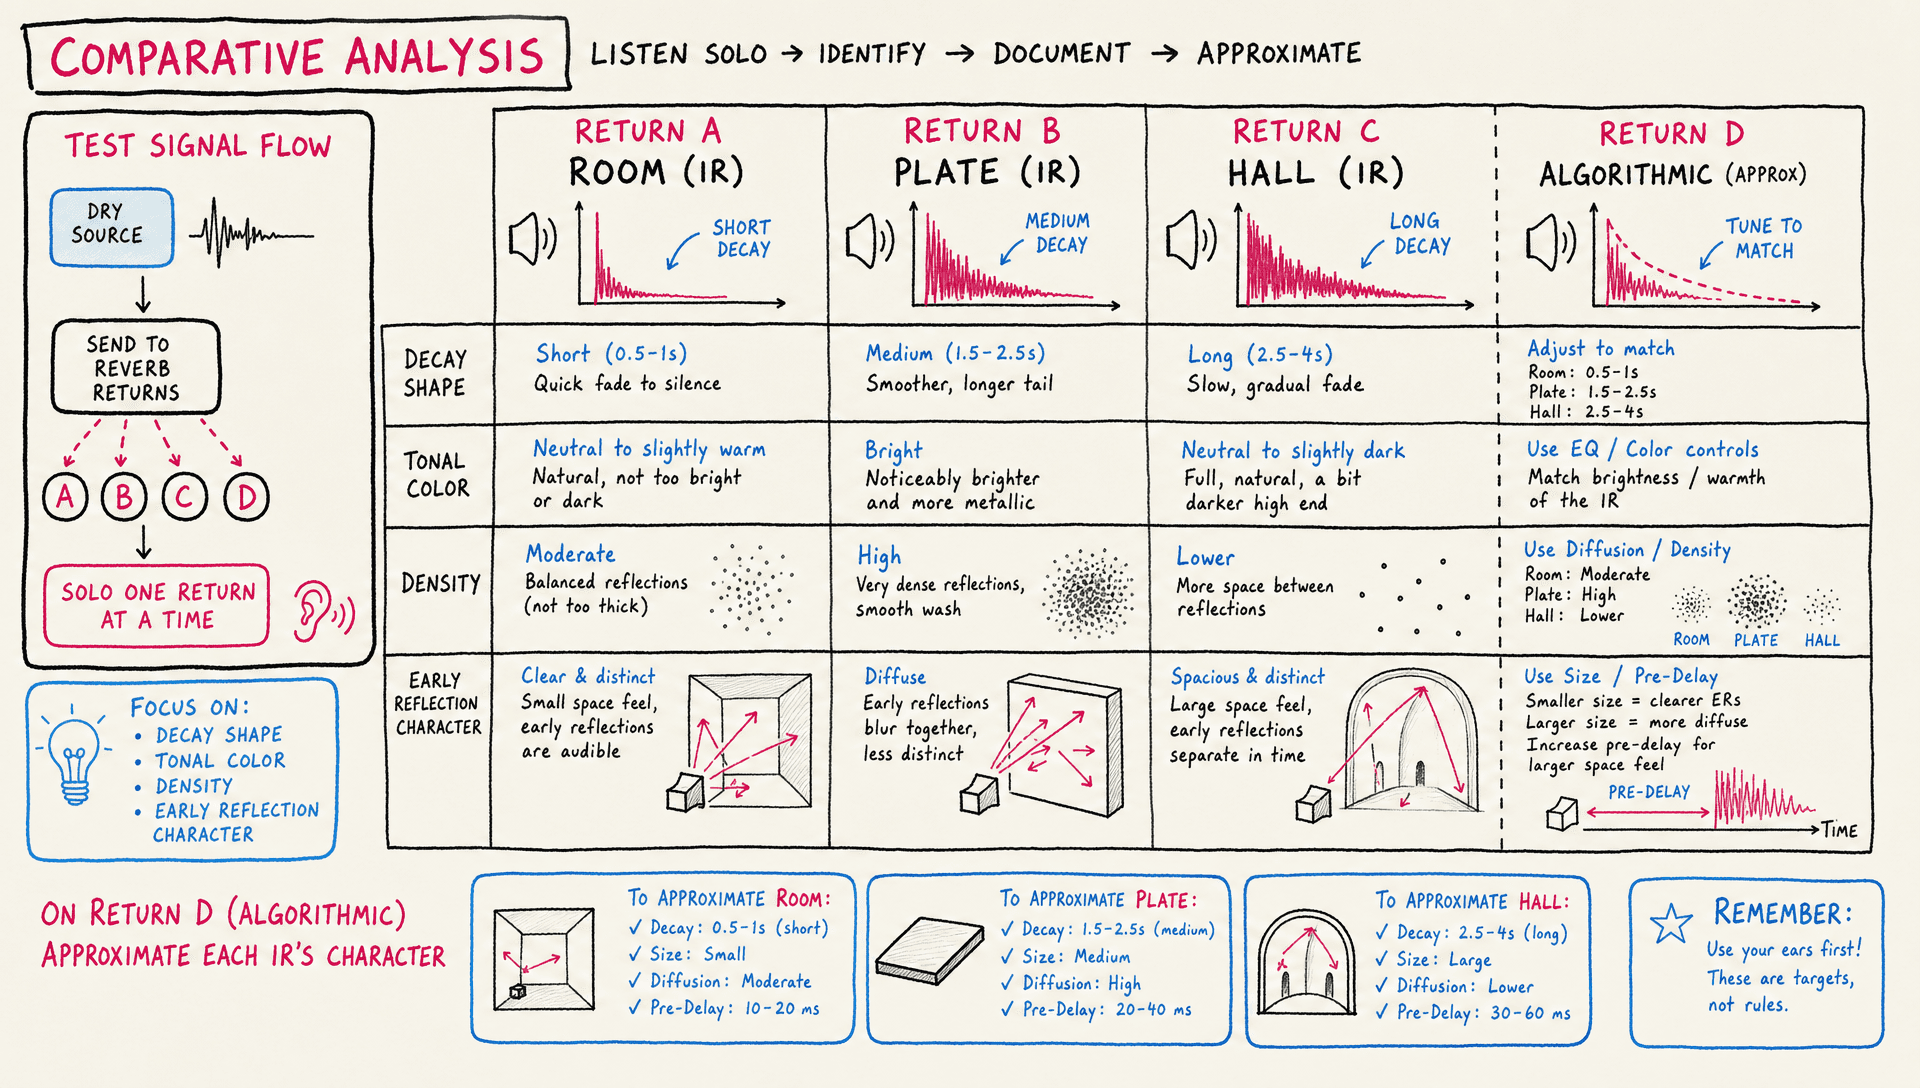 COMPARATIVE ANALYSIS
LISTEN SOLO → IDENTIFY → DOCUMENT → APPROXIMATE
TEST SIGNAL FLOW
DRY
SOURCE
SEND TO
REVERB
RETURNS
A B C D
SOLO ONE RETURN
AT A TIME
FOCUS ON:
• DECAY SHAPE
• TONAL COLOR
• DENSITY
• EARLY REFLECTION
CHARACTER
RETURN A
ROOM (IR)
SHORT
DECAY
RETURN B
PLATE (IR)
MEDIUM
DECAY
RETURN C
HALL (IR)
LONG
DECAY
RETURN D
ALGORITHMIC (APPROX)
TUNE TO
MATCH
DECAY
SHAPE
Short (0.5-1s)
Quick fade to silence
Medium (1.5-2.5s)
Smoother, longer tail
Long (2.5-4s)
Slow, gradual fade
Adjust to match
Room: 0.5-1s
Plate: 1.5-2.5s
Hall: 2.5-4s
TONAL
COLOR
Neutral to slightly warm
Natural, not too bright
or dark
Bright
Noticeably brighter
and more metallic
Neutral to slightly dark
Full, natural, a bit
darker high end
Use EQ / Color controls
Match brightness / warmth
of the IR
DENSITY
Moderate
Balanced reflections
(not too thick)
High
Very dense reflections,
smooth wash
Lower
More space between
reflections
Use Diffusion / Density
Room: Moderate
Plate: High
Hall: Lower
ROOM PLATE HALL
EARLY
REFLECTION
CHARACTER
Clear & distinct
Small space feel,
early reflections
are audible
Diffuse
Early reflections
blur together,
less distinct
Spacious & distinct
Large space feel,
early reflections
separate in time
Use Size / Pre-Delay
Smaller size = clearer ERs
Larger size = more diffuse
Increase pre-delay for
larger space feel
PRE-DELAY
TIME
ON RETURN D (ALGORITHMIC)
APPROXIMATE EACH IR'S CHARACTER
TO APPROXIMATE ROOM:
✓ Decay: 0.5-1s (short)
✓ Size: Small
✓ Diffusion: Moderate
✓ Pre-Delay: 10-20 ms
TO APPROXIMATE PLATE:
✓ Decay: 1.5-2.5s (medium)
✓ Size: Medium
✓ Diffusion: High
✓ Pre-Delay: 20-40 ms
TO APPROXIMATE HALL:
✓ Decay: 2.5-4s (long)
✓ Size: Large
✓ Diffusion: Lower
✓ Pre-Delay: 30-60 ms
REMEMBER:
Use your ears first!
These are targets,
not rules.